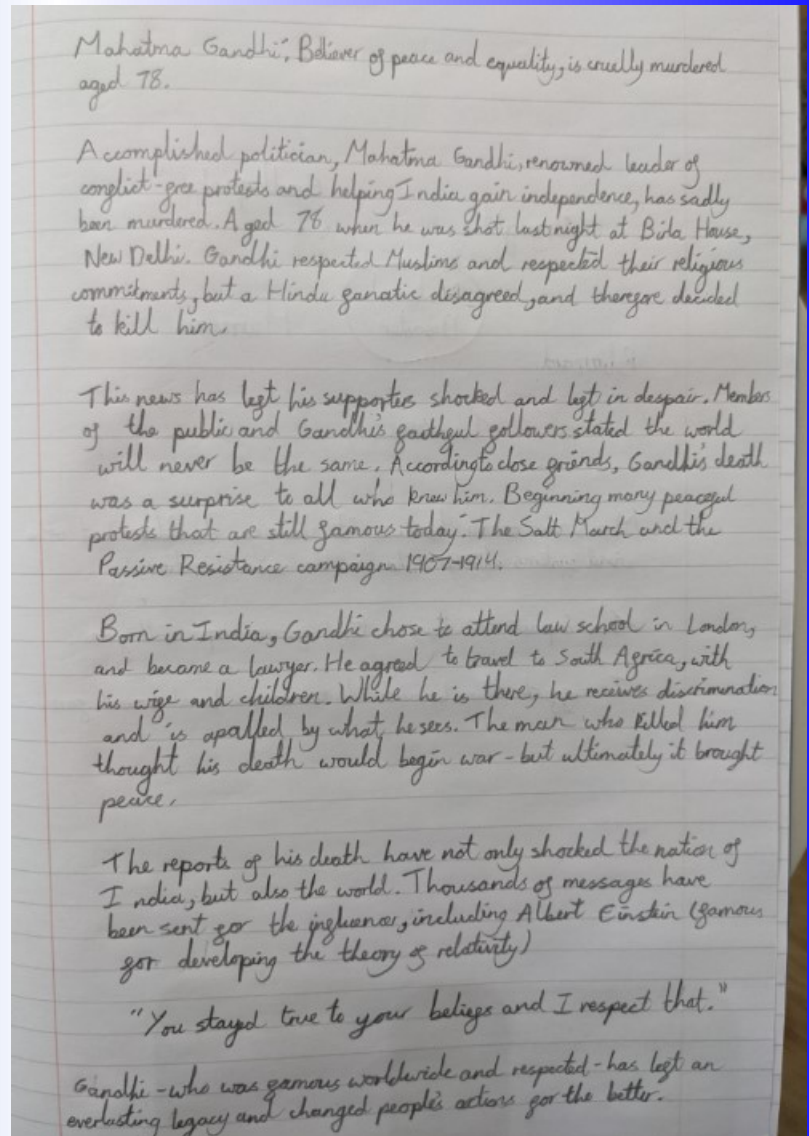 Mahatma Gandhi: Believer of peace and equality, is cruelly murdered
aged 78.
Accomplished politician, Mahatma Gandhi, renowned leader of
conflict-free protests and helping India gain independence, has sadly
been murdered. Aged 78 when he was shot last night at Birla House,
New Delhi. Gandhi respected Muslims and respected their religious
commitments, but a Hindu fanatic disagreed, and therefore decided
to kill him.
This news has left his supporters shocked and left in despair. Members
of the public and Gandhi's faithful followers stated the world
will never be the same. According to close friends, Gandhi's death
was a surprise to all who knew him. Beginning many peaceful
protests that are still famous today: The Salt March and the
Passive Resistance campaign 1907-1914.
Born in India, Gandhi chose to attend law school in London,
and became a lawyer. He agreed to travel to South Africa, with
his wife and children. While he is there, he receives discrimination
and is apalled by what he sees. The man who killed him
thought his death would begin war - but ultimately it brought
peace.
The reports of his death have not only shocked the nation of
India, but also the world. Thousands of messages have
been sent for the influencer, including Albert Einstein (famous
for developing the theory of relativity)
"You stayd true to your beliefs and I respect that."
Gandhi - who was famous worldwide and respected - has left an
everlasting legacy and changed people's actions for the better.